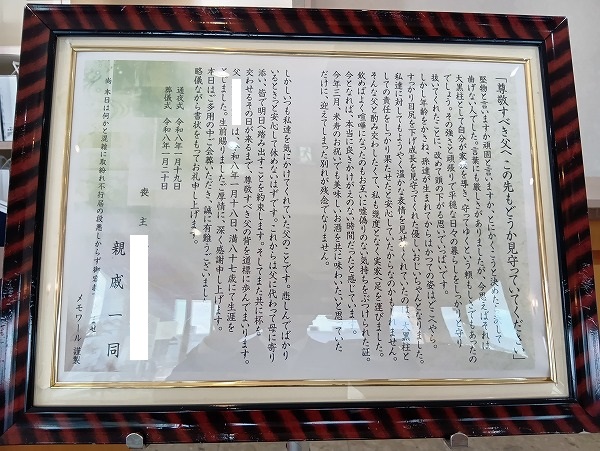 「尊敬すべき父へ、この先もどうか見守っていてください」
堅物と言いますか頑固と言いますか、とにかくこうと決めたら決して
曲げない人でした。言葉にも厳しさがありましたが、今思えばそれは
大黒柱として自分が家族を導き、守ってゆくという頼もしさでもあったの
でしょう。その強さと頑張りで平穏な日々の暮らしをしっかりと守り
抜いてくれたことに、改めて頭の下がる思いでいっぱいです。
しかし年齢をかさね、孫達が生まれてからはかつての姿はどこへやら。
すっかり目尻を下げ成長を見守ってくれた優しいおじいちゃんとなりました。
私達に対してもようやく温かな表情を見せてくれていたのは、大黒柱と
しての責任をしっかり果たせたと安心していたからなのかもしれません。
そんな父と酌み交わしたくて、私も幾度となく実家へ足を運びました。
飲めばよく喧嘩になったのもお互いに嘘偽りのない気持ちをぶつけられた証。
今となれば、本当に良く かけがえのない時間だったと感じています。
今年三月、米寿のお祝いでも美味しいお酒を共に味わいたいと思っていた
だけに、迎えてしまった別れが残念でなりません。
しかしいつも私達を気にかけてくれていた父のことです。悲しんでばかり
いるときっと安心して休めないはずです。これからは父に代わって母に寄り
添い、皆で明日へ踏み出すことを約束します。そしてまた共に杯を
交わせるその日が来るまで、尊敬すべき父の背を道標に歩んでまいります。
父 は、令和八年一月十八日、満八十七歳にて生涯を
とじました。生前賜りましたご厚情に、深く感謝申し上げます。
本日はご多用の中ご会葬いただき、誠に有難うございました。
略儀ながら書状をもってお礼申し上げます。
通夜式 令和八年一月十九日
葬儀式 令和八年一月二十日
喪主
親戚一同
尚 本日は何かと混雑に取紛れ不行届の段悪しからず御容
メモワール 謹製